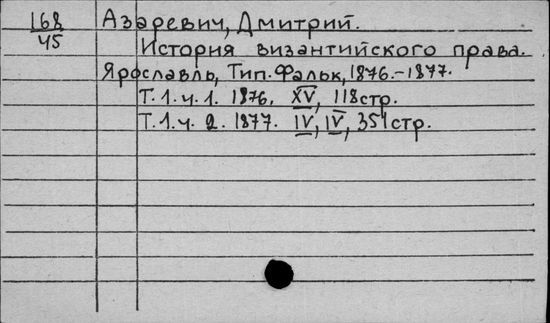 168
45
Азаревич, Дмитрий.
История византийского права.
Ярославль, Тип. Фальк, 1876.-1877.
Т.1.ч.1. 1876. XV, 118стр.
Т.1.ч.2. 1877. IV, IV, 351стр.